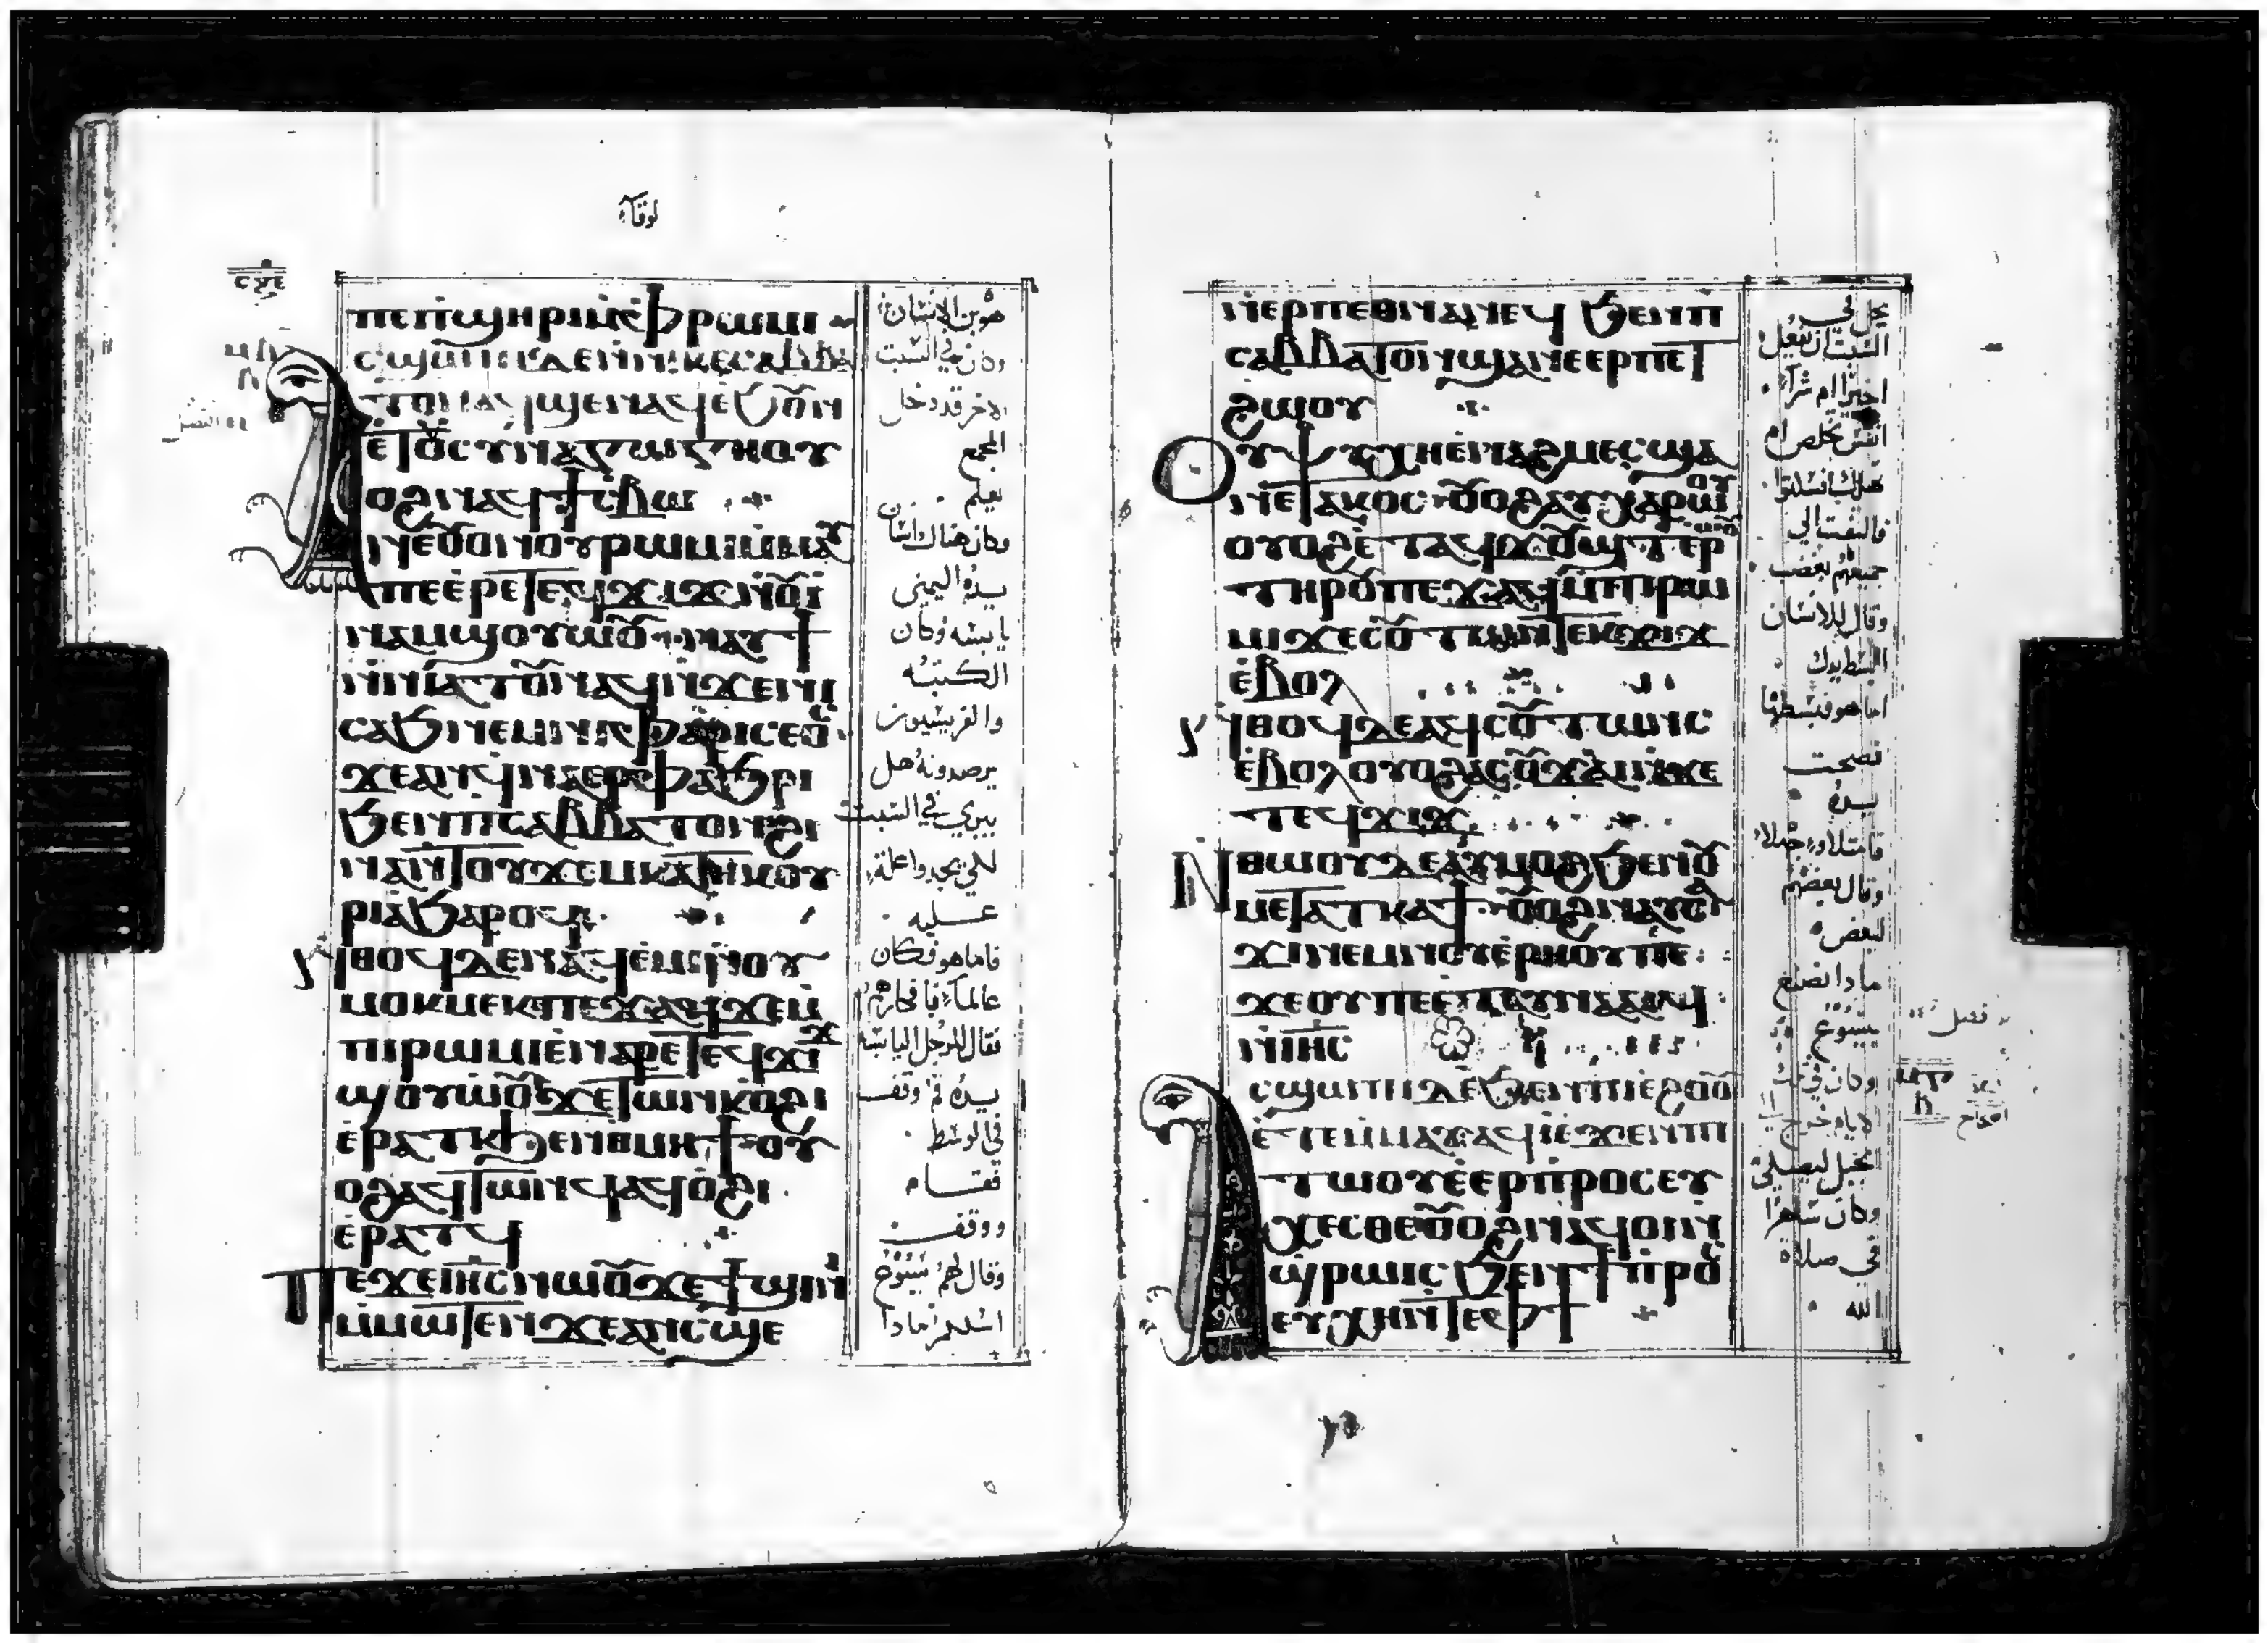 لوقا
ⲡⲉⲡϣⲏⲣⲓⲙ̀ⲫⲣⲱⲙⲓ
ⲥϣⲱⲡⲓⲇⲉϧⲉⲛⲕⲉⲥⲁⲃⲃⲁ
ⲧⲟⲛⲁϥϣⲉⲛⲁϥⲉ̀ϧⲟⲩⲛ
ⲉ̀ϯⲥⲩⲛⲁⲅⲱⲅⲏⲟⲩ
ⲟϩⲛⲁϥϯⲥⲃⲱ
ⲛⲉⲟⲩⲟⲛⲟⲩⲣⲱⲙⲓⲙ̀ⲙⲁⲩ
ⲡⲉⲉ̀ⲣⲉⲧⲉϥϫⲓϫⲛ̀ⲟⲩⲓ̀
ⲛⲁⲙϣⲟⲩⲱⲟⲩ ⲛⲁⲩϯ
ⲛ̀ⲛⲓⲁⲧⲟⲩⲛⲁϥⲛ̀ϫⲉⲛⲓ
ⲥⲁϧⲛⲉⲙⲛⲓⲫⲁⲣⲓⲥⲉⲟⲥ
ϫⲉⲁⲛϥⲛⲁⲉⲣⲫⲁϧⲣⲓ
ϧⲉⲛⲡⲓⲥⲁⲃⲃⲁⲧⲟⲛϩⲓ
ⲛⲁⲛ̀ⲧⲟⲩϫⲉⲙⲕⲁⲧⲏⲕⲟⲩ
ⲣⲓⲁϧⲁⲣⲟϥ
ⲛ̀ⲑⲟϥⲇⲉⲛⲁϥⲉ̀ⲙⲓⲛ̀ⲛⲟⲩ
ⲙⲟⲕⲙⲉⲕⲡⲉϫⲁϥϫⲉⲙ̀
ⲡⲓⲣⲱⲙⲓⲉ̀ⲛⲁⲣⲉⲧⲉϥϫⲓϫ
ϣⲟⲩⲱ̀ⲟⲩϫⲉⲧⲱⲛⲕⲟ̀ϩⲓ
ⲉ̀ⲣⲁⲧⲕϧⲉⲛⲑⲙⲏϯⲟⲩ
ⲟϩⲁϥⲧⲱⲛϥⲁϥⲟ̀ϩⲓ
ⲉ̀ⲣⲁⲧϥ
ⲡⲉϫⲉⲓⲏⲥⲛⲱⲟⲩϫⲉϯϣⲓⲛⲓ
ⲙ̀ⲙⲱⲧⲉⲛϫⲉⲁⲛⲥϣⲉ
هو بن الانسان
وكان في السبت
الاخر قد دخل
المجمع
يعلم
وكان هناك انسان
يده اليمنى
يابسه وكان
الكتبه
والفريسيون
يرصدونه هل
يبري في السبت
لكي يجدوا علة
عليه
فاما هو فكان
عالما بافكارهم
فقال للرجل اليابسه
يده قم وقف
في الوسط
فقام
ووقف
وقال لهم يسوع
اسلكم ماذا
ⲛ̀ⲉⲣⲡⲉⲑⲛⲁⲛⲉϥ ϧⲉⲛⲡ
ⲥⲁⲃⲃⲁⲧⲟⲛϣⲁⲛⲉⲉⲣⲡⲉⲧ
ϩⲱⲟⲩ
ⲟⲩⲯⲩⲭⲏⲉ̀ⲛⲁϩⲙⲉⲥϣⲁ
ⲛⲉⲧⲁⲕⲟⲥ ⲟⲩⲟϩⲁⲩⲭⲁⲣⲱⲟⲩ
ⲟⲩⲟϩⲉ̀ⲧⲁϥϫⲟⲩϣⲧⲉ̀ⲣⲱⲟⲩ
ⲧⲏⲣⲟⲩⲡⲉϫⲁϥⲙ̀ⲡⲓⲣⲱ
ⲙⲓϫⲉⲥⲟⲩⲧⲱⲛⲧⲉⲕϫⲓϫ
ⲉ̀ⲃⲟⲗ
ⲛ̀ⲑⲟϥⲇⲉⲁϥⲥⲟⲩⲧⲱⲛⲥ
ⲉ̀ⲃⲟⲗⲟⲩⲟϩⲁⲥⲟⲩϫⲁⲓⲛ̀ϫⲉ
ⲧⲉϥϫⲓϫ
ⲛ̀ⲑⲱⲟⲩⲇⲉⲁⲩⲙⲟϩϧⲉⲛⲟⲩ
ⲙⲉⲧⲁⲧⲕⲁϯ ⲟⲩⲟϩⲛⲁⲩⲥⲁ
ϫⲓⲛⲉⲙⲛⲟⲩⲉ̀ⲣⲏⲟⲩⲡⲉ
ϫⲉⲟⲩⲡⲉⲉ̀ⲧⲟⲩⲛⲁⲁⲓϥ
ⲛ̀ⲓⲏⲥ
ⲥϣⲱⲡⲓⲇⲉϧⲉⲛⲛⲓⲉ̀ϩⲟⲟⲩ
ⲉ̀ⲧⲉⲙ̀ⲙⲁⲩⲁϥⲓ̀ⲉ̀ϫⲉⲛⲡⲓ
ⲧⲱⲟⲩⲉ̀ⲉⲣⲡⲣⲟⲥⲉⲩ
ⲭⲉⲥⲑⲉⲟⲩⲟϩⲛⲁϥⲟⲓⲛ̀
ϣⲣⲱⲓⲥϧⲉⲛϯⲡⲣⲟⲥ
ⲉⲩⲭⲏⲛ̀ⲧⲉⲫϯ
يحل في
السبت ان نفعل
اخيرا ام شرا
انفس تخلص ام
تهلك فسكتوا
فالتفت الي
جميعهم بغضب
وقال للانسان
ابسط يدك
اما هو فبسطها
فصحت
يده
فامتلاوا جهلا
وقال بعضهم
لبعض
ماذا نصنع
بيسوع
وكان في تلك
الايام خرج الى
الجبل ليصلي
وكان ساهرا
في صلاة
الله